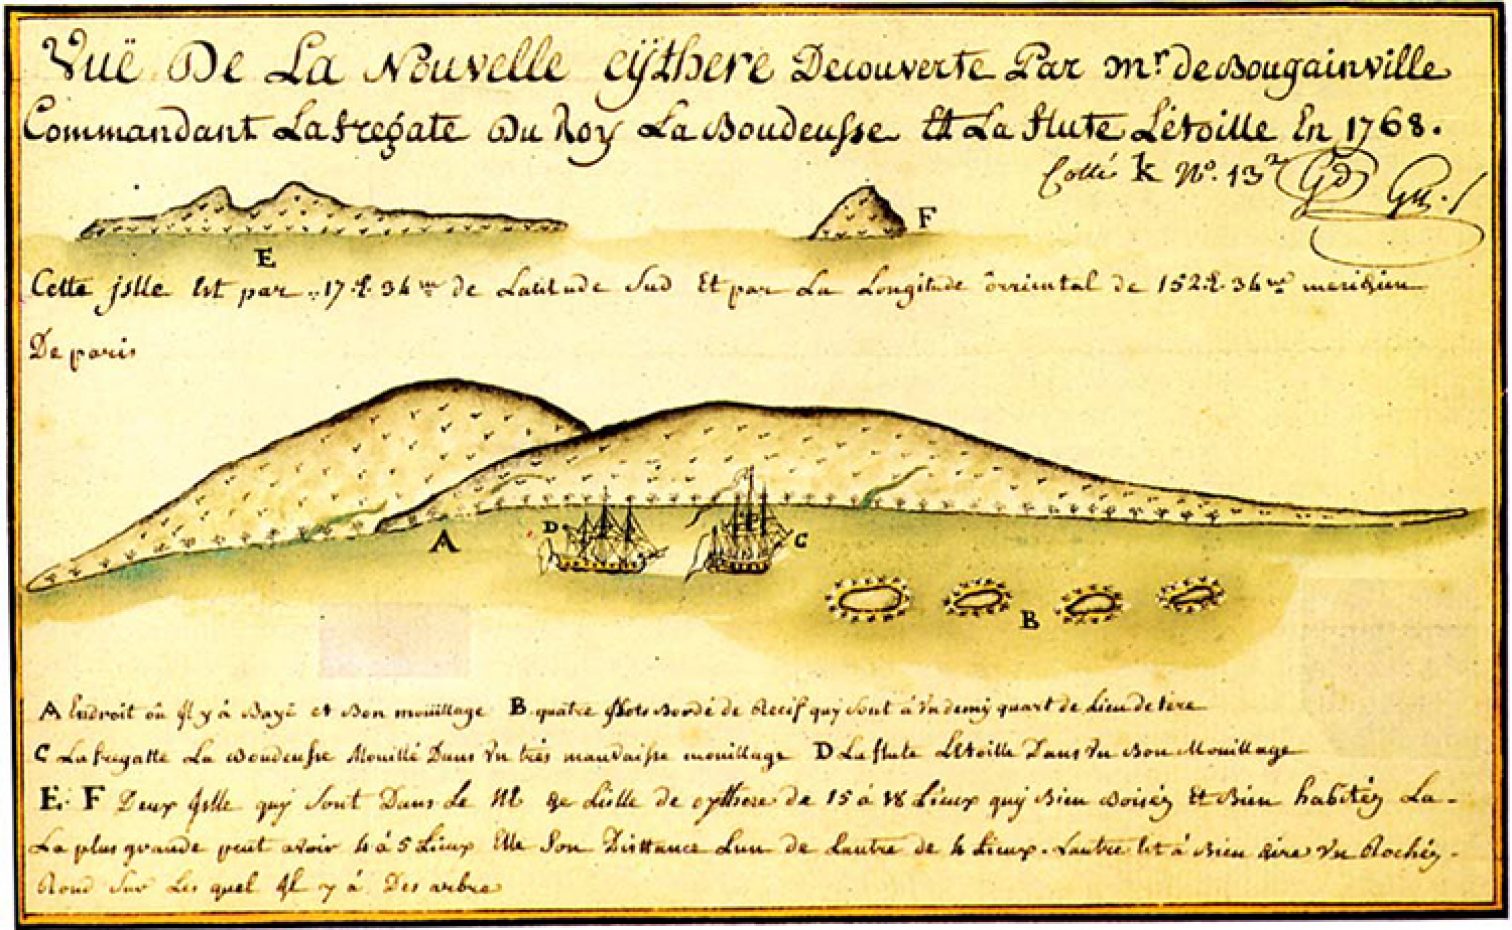 Vuë De La Nouvelle cÿthere Decouverte Par mr. de Bougainville
Commandant La fregate Du Roy La Boudeusse Et La flute Letoille En 1768.
Cotté k No. 13
E
F
Cette jslle Est par 17.d. 34 m de Latitude Sud Et par La Longitude orriental de 152.d. 34 m meridien
De paris
A
D
C
B
A Endroit où Jl y à Baye et Bon mouillage B quatre Jlots Bordé de Recif quy sont à un demy quart de Lieu de tere
C La fregatte La Boudeusse Mouillé Dans un très mauvaisse mouillage D La flute Letoille Dans un Bon Mouillage
E. F Deux Jslle quy sont Dans Le de Lisle de cythere de 15 à 18 Lieux quy Bien Boisés Et Bien habités La-
La plus grande peut avoir 4 à 5 Lieux Elle Son Disttance Lun de Lautre de 4 Lieux. Lautre Est à Bien dire un Rochéz-
Rond Sur Les quel Jl y á Des arbre